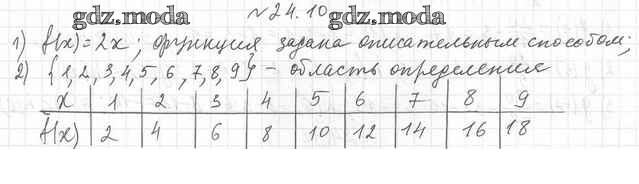 gdz.moda №24.10 gdz.moda
1) f(x)=2x; функция задана описательным способом;
2) {1,2,3,4,5,6,7,8,9} – область определения
x 1 2 3 4 5 6 7 8 9
f(x) 2 4 6 8 10 12 14 16 18